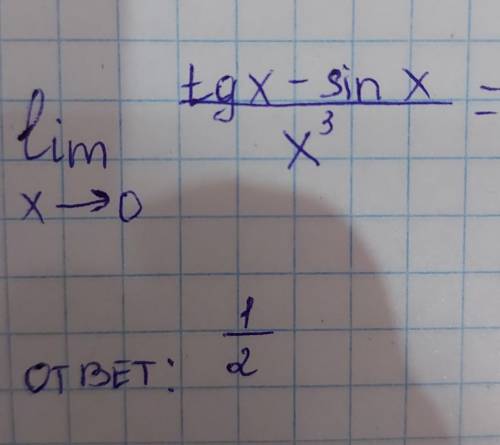 lim x→0 (tg x − sin x)/x³ =
ОТВЕТ: 1/2